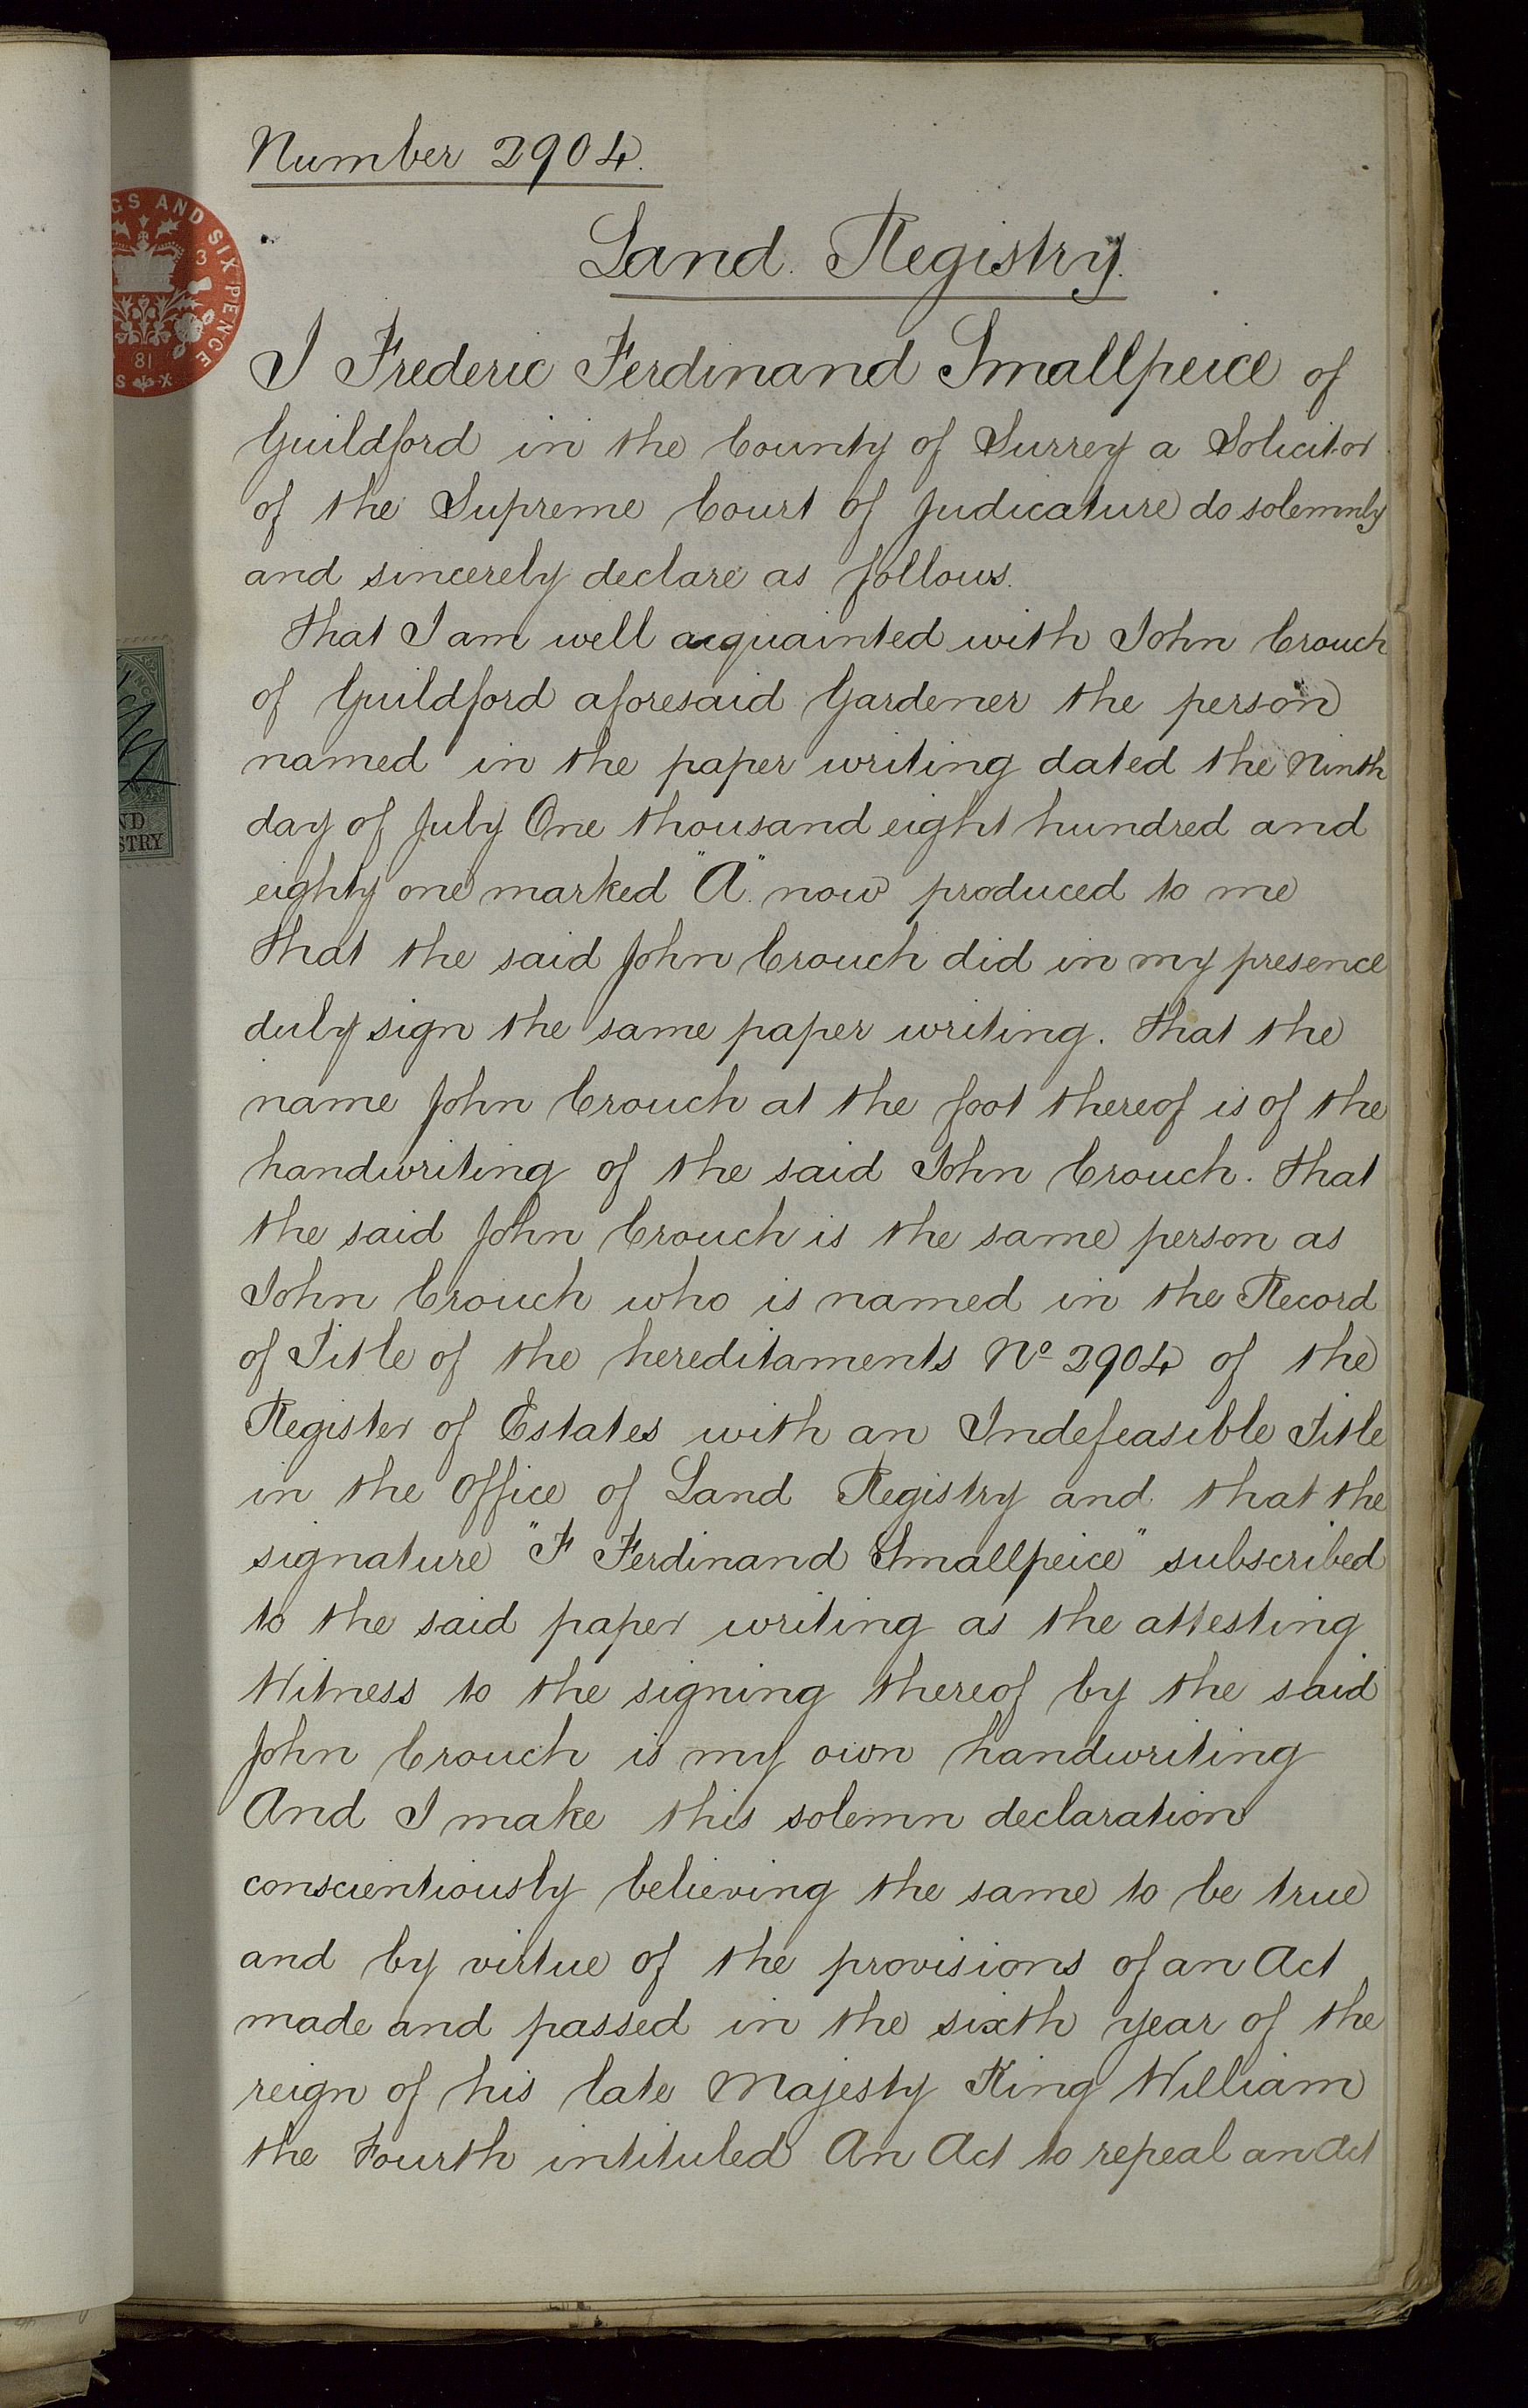 Number 2904.
Land Registry.
GS AND SIX PENCE
3
81
I Frederic Ferdinand Smallpeice of
Guildford in the County of Surrey a Solicitor
of the Supreme Court of Judicature do solemnly
and sincerely declare as follows.
That I am well acquainted with John Crouch
of Guildford aforesaid Gardener the person
named in the paper writing dated the Ninth
day of July One thousand eight hundred and
eighty one marked "A" now produced to me
That the said John Crouch did in my presence
duly sign the same paper writing. That the
name John Crouch at the foot thereof is of the
handwriting of the said John Crouch. That
the said John Crouch is the same person as
John Crouch who is named in the Record
of Title of the hereditaments No 2904 of the
Register of Estates with an Indefeasible Title
in the Office of Land Registry and that the
signature "F Ferdinand Smallpeice" subscribed
to the said paper writing as the attesting
Witness to the signing thereof by the said
John Crouch is my own handwriting
And I make this solemn declaration
conscientiously believing the same to be true
and by virtue of the provisions of an Act
made and passed in the sixth year of the
reign of his late Majesty King William
the Fourth intituled An Act to repeal an Act
ND
STRY